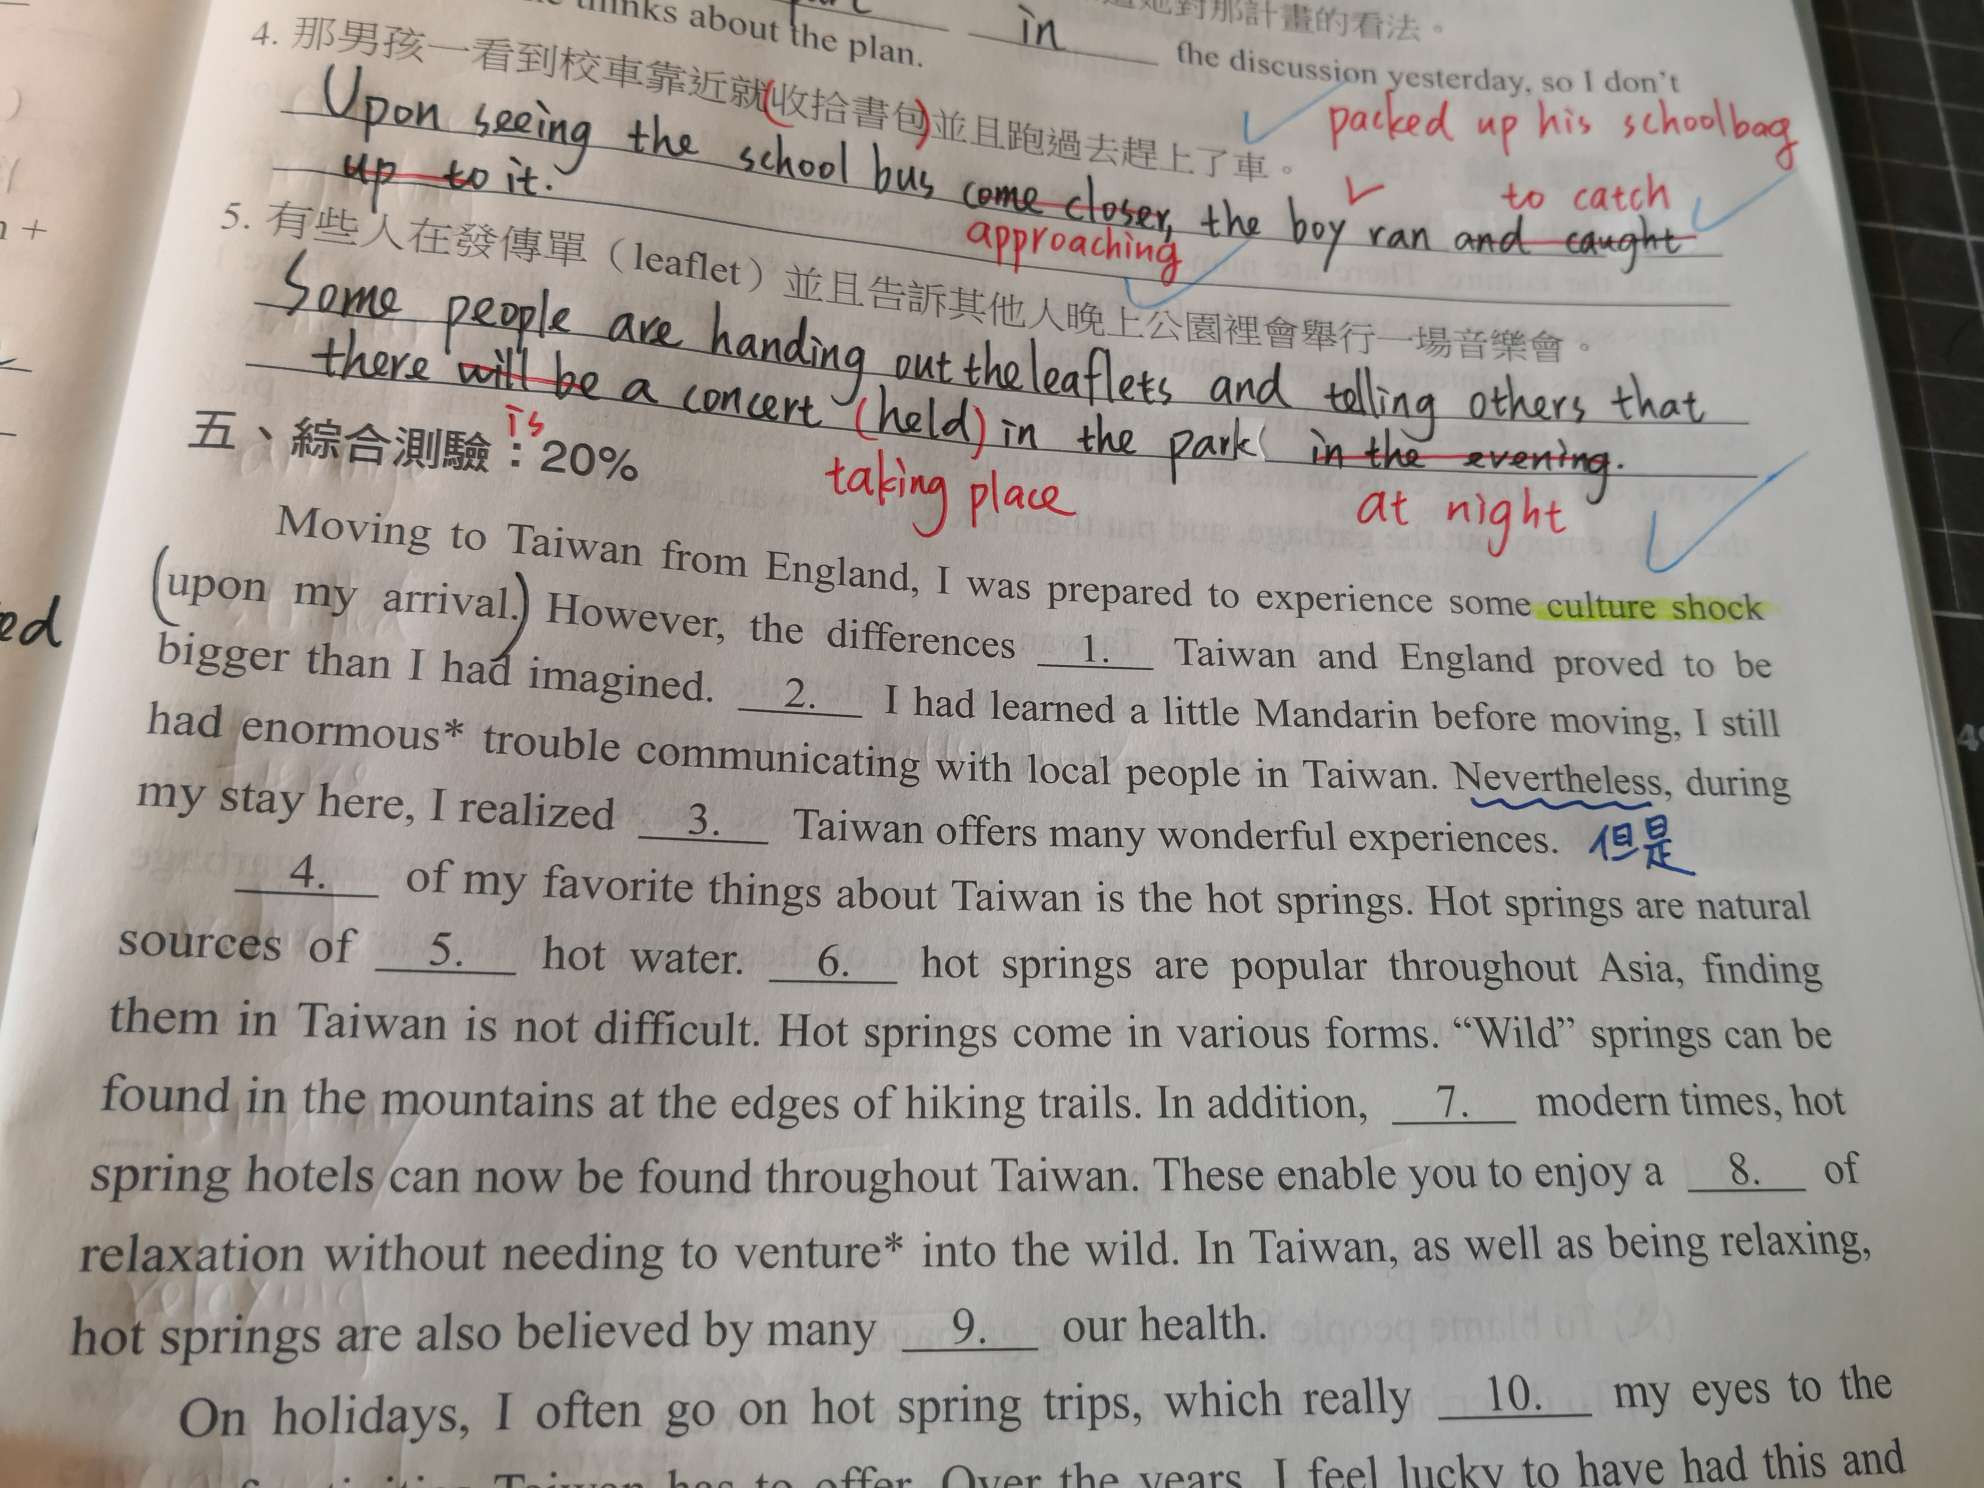 thinks about the plan.
in the discussion yesterday, so I don't
對那計畫的看法。
4. 那男孩一看到校車靠近就(收拾書包)並且跑過去趕上了車。
packed up his schoolbag
Upon seeing the school bus come closer, the boy ran and caught
to catch
approaching
up to it.
5. 有些人在發傳單（leaflet）並且告訴其他人晚上公園裡會舉行一場音樂會。
Some people are handing out the leaflets and telling others that
there will be a concert (held) in the park in the evening.
is
taking place
at night
五、綜合測驗：20%
Moving to Taiwan from England, I was prepared to experience some culture shock
(upon my arrival.) However, the differences 1. Taiwan and England proved to be
bigger than I had imagined. 2. I had learned a little Mandarin before moving, I still
had enormous* trouble communicating with local people in Taiwan. Nevertheless, during
my stay here, I realized 3. Taiwan offers many wonderful experiences. 但是
4. of my favorite things about Taiwan is the hot springs. Hot springs are natural
sources of 5. hot water. 6. hot springs are popular throughout Asia, finding
them in Taiwan is not difficult. Hot springs come in various forms. “Wild” springs can be
found in the mountains at the edges of hiking trails. In addition, 7. modern times, hot
spring hotels can now be found throughout Taiwan. These enable you to enjoy a 8. of
relaxation without needing to venture* into the wild. In Taiwan, as well as being relaxing,
hot springs are also believed by many 9. our health.
On holidays, I often go on hot spring trips, which really 10. my eyes to the
Taiwan has to offer. Over the years, I feel lucky to have had this and
ed